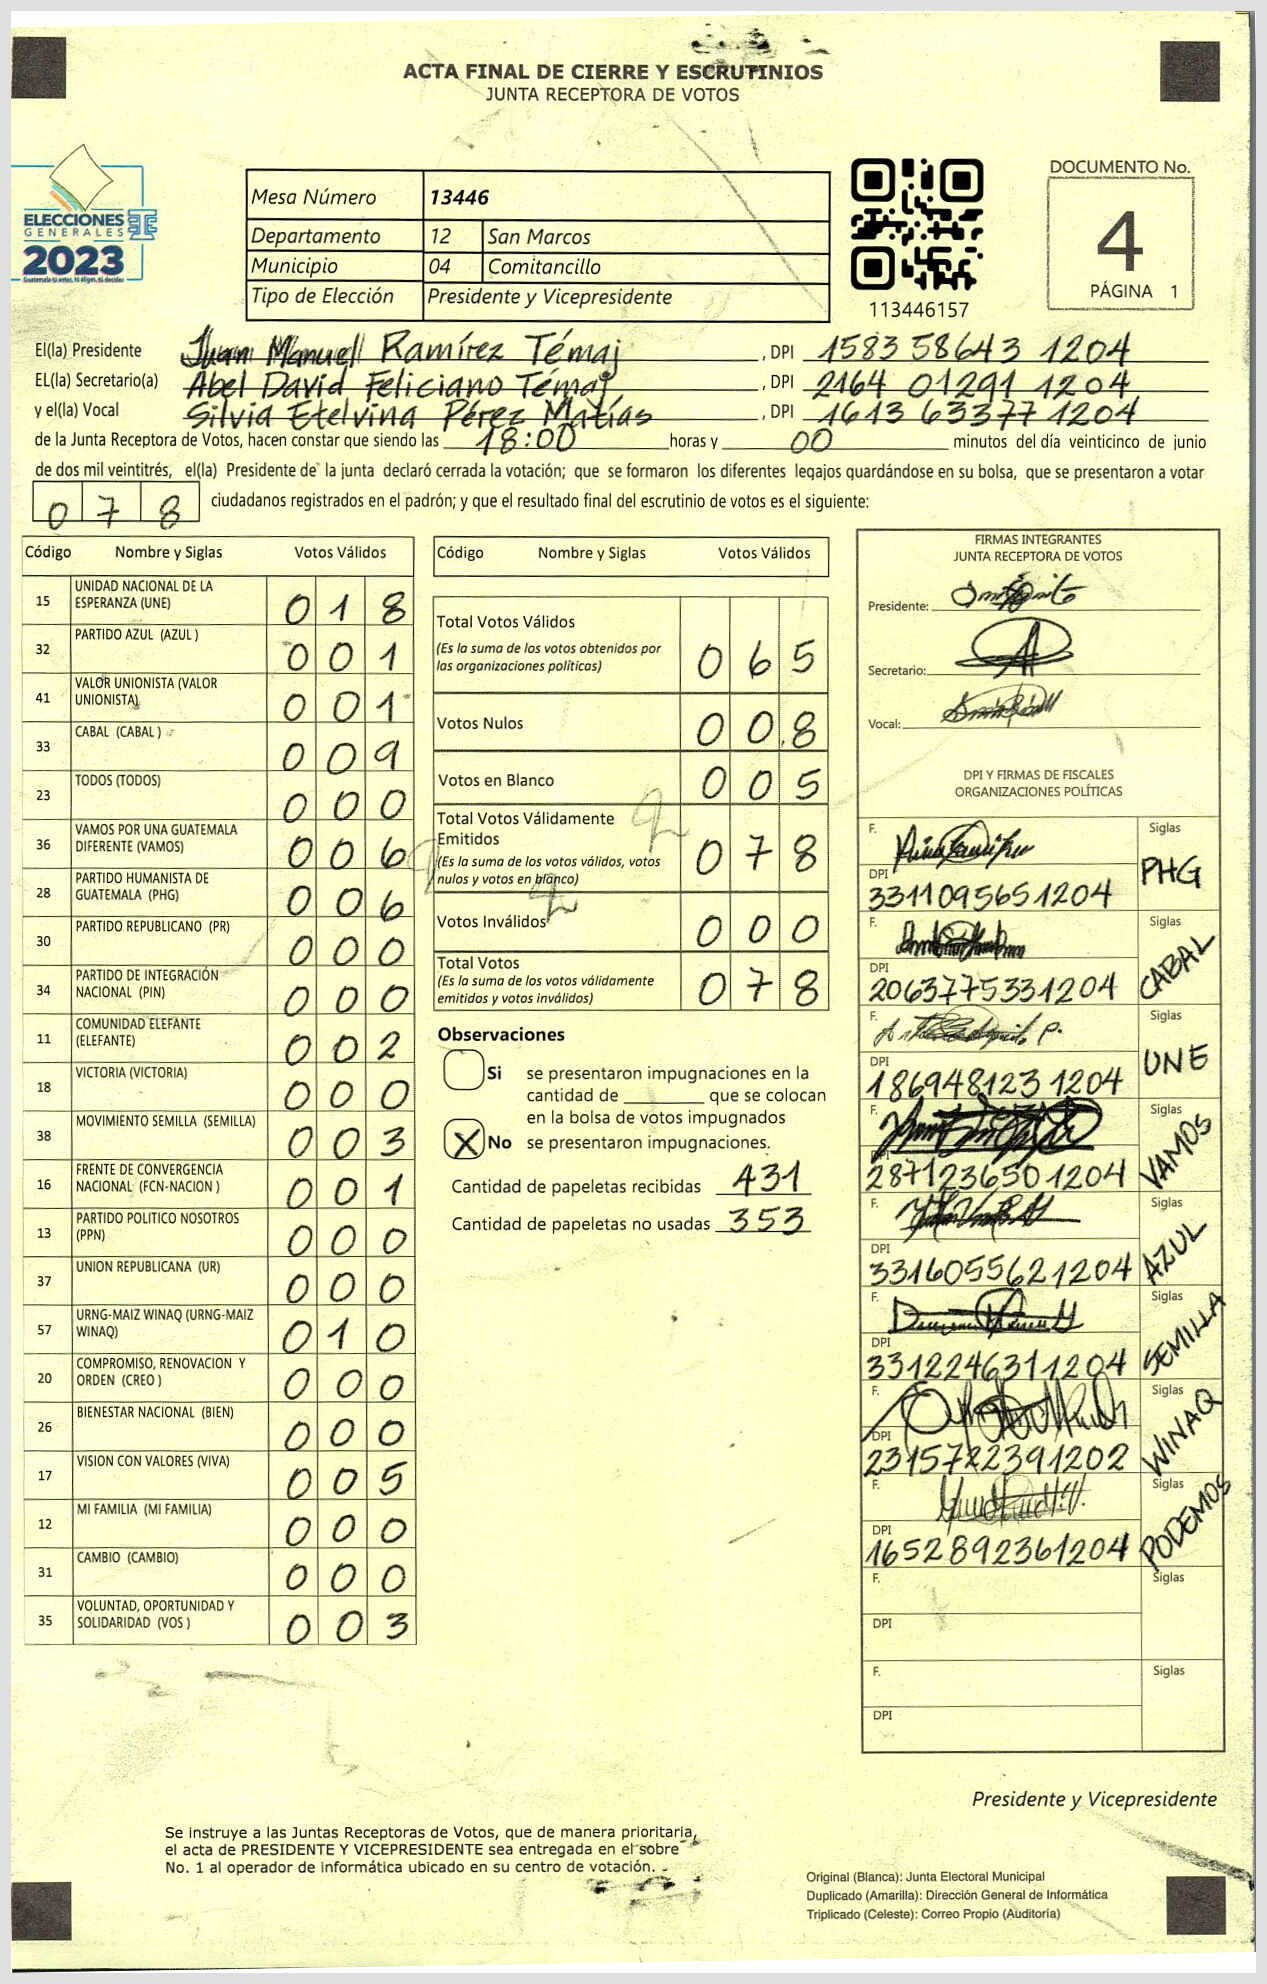 ACTA FINAL DE CIERRE Y ESCRUTINIOS
JUNTA RECEPTORA DE VOTOS
ELECCIONES
GENERALES
2023
Guatemala si votas, tú eliges, tú decides
Mesa Número 13446
Departamento 12 San Marcos
Municipio 04 Comitancillo
Tipo de Elección Presidente y Vicepresidente
113446157
DOCUMENTO No.
4
PÁGINA 1
El(la) Presidente Juan Manuell Ramírez Témaj , DPI 1583 58643 1204
EL(la) Secretario(a) Abel David Feliciano Témaj , DPI 2164 01291 1204
y el(la) Vocal Silvia Etelvina Pérez Matías , DPI 1613 63377 1204
de la Junta Receptora de Votos, hacen constar que siendo las 18:00 horas y 00 minutos del día veinticinco de junio
de dos mil veintitrés, el(la) Presidente de la junta declaró cerrada la votación; que se formaron los diferentes legajos guardándose en su bolsa, que se presentaron a votar
078 ciudadanos registrados en el padrón; y que el resultado final del escrutinio de votos es el siguiente:
Código Nombre y Siglas Votos Válidos
15 UNIDAD NACIONAL DE LA ESPERANZA (UNE) 018
32 PARTIDO AZUL (AZUL ) 001
41 VALOR UNIONISTA (VALOR UNIONISTA) 001
33 CABAL (CABAL ) 009
23 TODOS (TODOS) 000
36 VAMOS POR UNA GUATEMALA DIFERENTE (VAMOS) 006
28 PARTIDO HUMANISTA DE GUATEMALA (PHG) 006
30 PARTIDO REPUBLICANO (PR) 000
34 PARTIDO DE INTEGRACIÓN NACIONAL (PIN) 000
11 COMUNIDAD ELEFANTE (ELEFANTE) 002
18 VICTORIA (VICTORIA) 000
38 MOVIMIENTO SEMILLA (SEMILLA) 003
16 FRENTE DE CONVERGENCIA NACIONAL (FCN-NACION ) 001
13 PARTIDO POLITICO NOSOTROS (PPN) 000
37 UNION REPUBLICANA (UR) 000
57 URNG-MAIZ WINAQ (URNG-MAIZ WINAQ) 010
20 COMPROMISO, RENOVACION Y ORDEN (CREO ) 000
26 BIENESTAR NACIONAL (BIEN) 000
17 VISION CON VALORES (VIVA) 005
12 MI FAMILIA (MI FAMILIA) 000
31 CAMBIO (CAMBIO) 000
35 VOLUNTAD, OPORTUNIDAD Y SOLIDARIDAD (VOS ) 003
Código Nombre y Siglas Votos Válidos
Total Votos Válidos
(Es la suma de los votos obtenidos por las organizaciones políticas) 065
Votos Nulos 008
Votos en Blanco 005
Total Votos Válidamente Emitidos
(Es la suma de los votos válidos, votos nulos y votos en blanco) 078
Votos Inválidos 000
Total Votos
(Es la suma de los votos válidamente emitidos y votos inválidos) 078
Observaciones
Si se presentaron impugnaciones en la
cantidad de ________ que se colocan
en la bolsa de votos impugnados
X No se presentaron impugnaciones.
Cantidad de papeletas recibidas 431
Cantidad de papeletas no usadas 353
FIRMAS INTEGRANTES
JUNTA RECEPTORA DE VOTOS
Presidente:
Secretario:
Vocal:
DPI Y FIRMAS DE FISCALES
ORGANIZACIONES POLÍTICAS
F. Siglas
DPI 3311095651204 PHG
F. Siglas
DPI 2063775331204 CABAL
F. Siglas
DPI 1869481231204 UNE
F. Siglas
DPI 2871236501204 VAMOS
F. Siglas
DPI 3316055621204 AZUL
F. Siglas
DPI 3312246311204 SEMILLA
F. Siglas
DPI 2315722391202 WINAQ
F. Siglas
DPI 1652892361204 PODEMOS
F. Siglas
DPI
F. Siglas
DPI
Presidente y Vicepresidente
Se instruye a las Juntas Receptoras de Votos, que de manera prioritaria,
el acta de PRESIDENTE Y VICEPRESIDENTE sea entregada en el sobre
No. 1 al operador de informática ubicado en su centro de votación.
Original (Blanca): Junta Electoral Municipal
Duplicado (Amarilla): Dirección General de Informática
Triplicado (Celeste): Correo Propio (Auditoría)